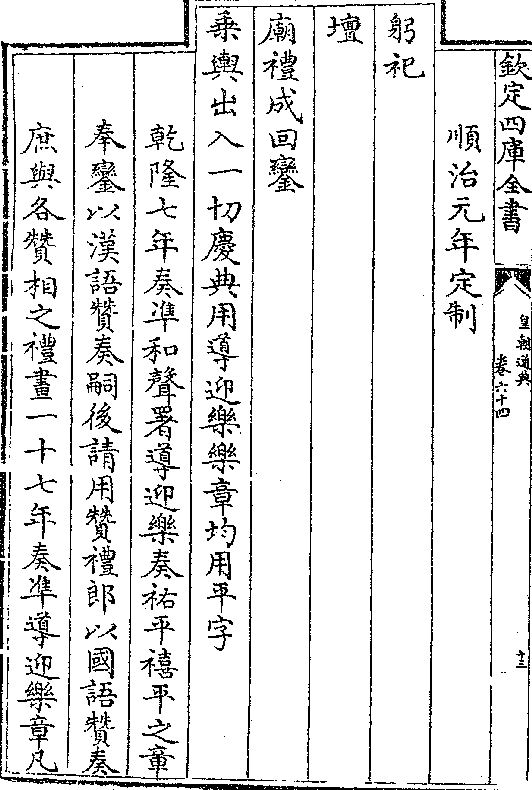 欽定四庫全書
皇朝通典
卷六十四
十三
順治元年定制
躬祀
壇
廟禮成回鑾
乗輿出入一切慶典用導迎樂樂章均用平字
乾隆七年奏準和聲署導迎樂奏祐平禧平之章
奉鑾以漢語贊奏嗣後請用贊禮郎以國語贊奏
庶與各贊相之禮畫一十七年奏準導迎樂章凡